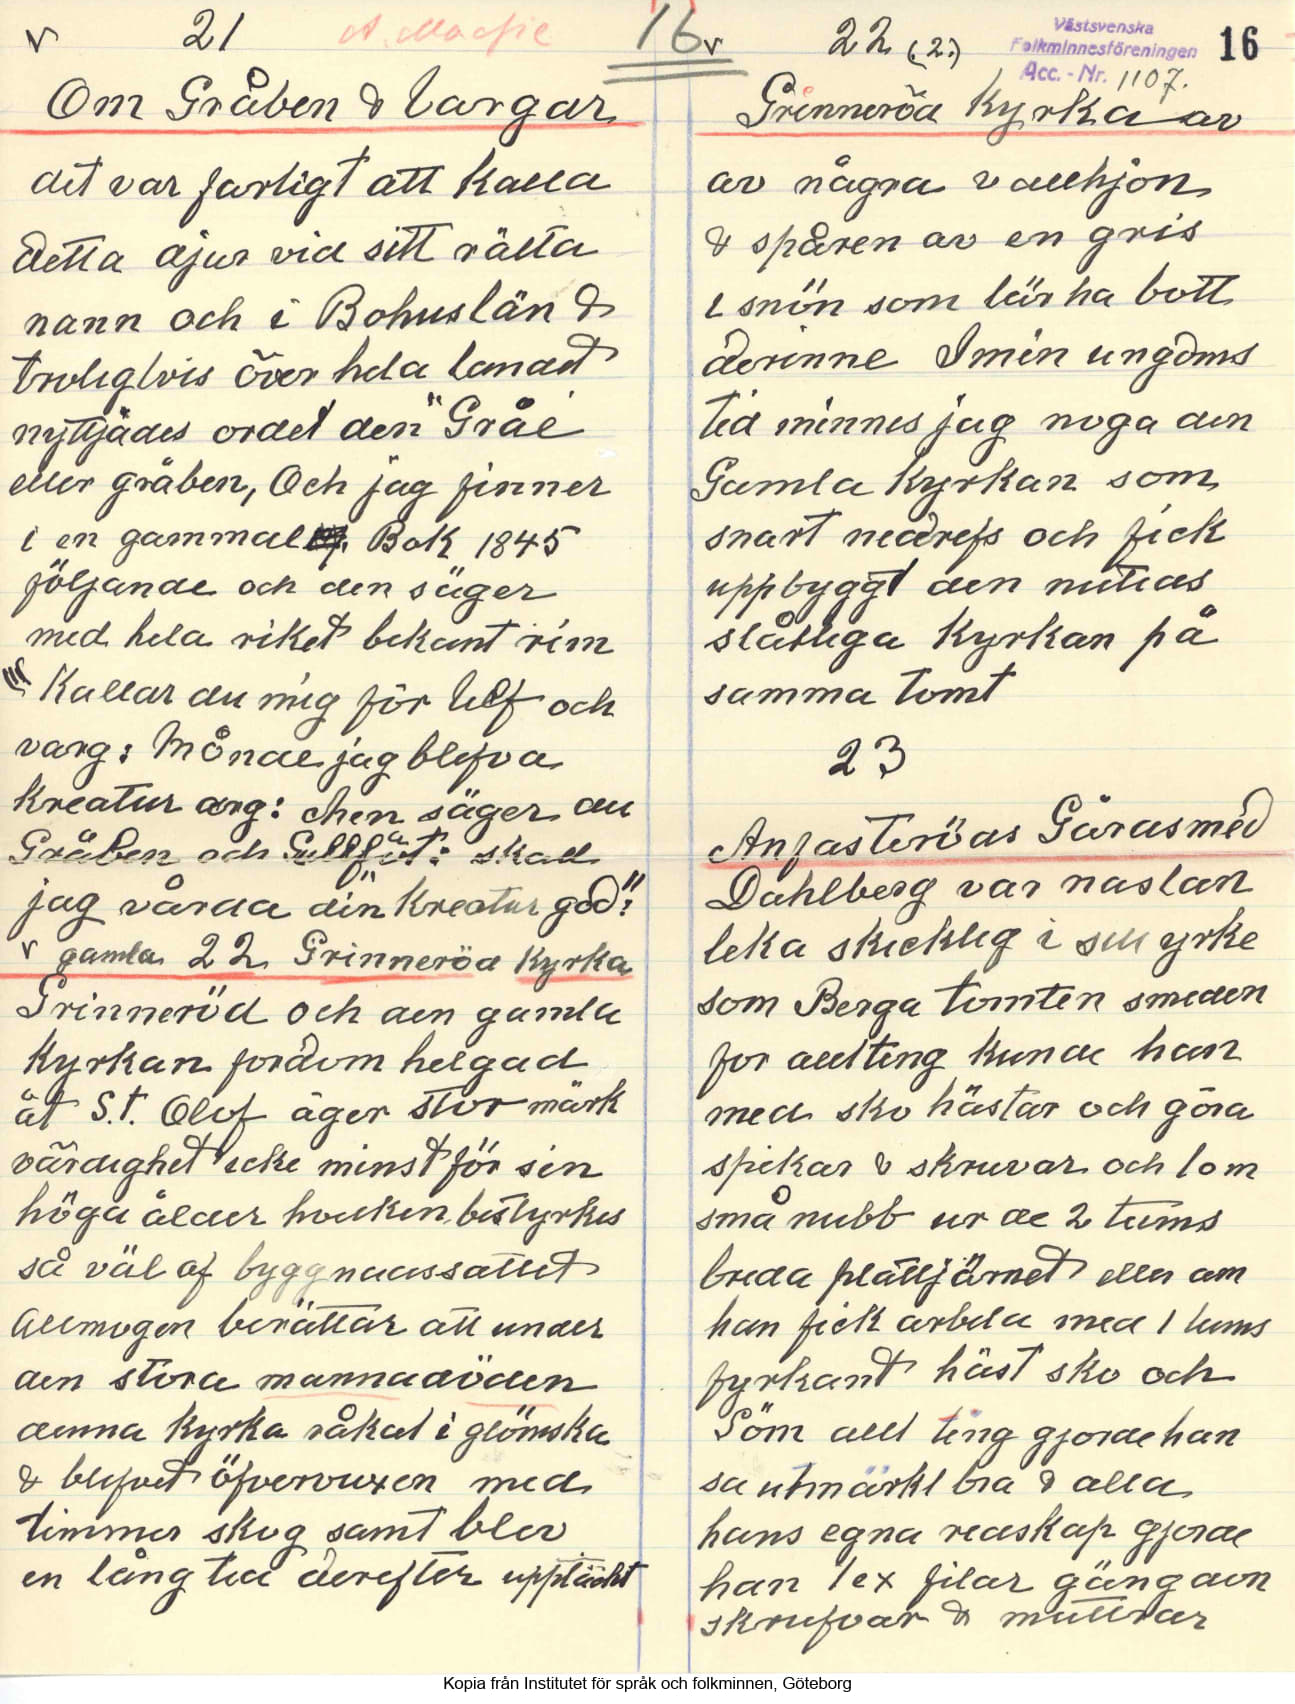 21
A. Macfie
16
Om Gråben & Vargar
det var farligt att kalla
detta djur vid sitt rätta
nann och i Bohuslän &
troligtvis över hela landet
nyttjades ordet den "Gråe
eller gråben, Och jag finner
i en gammal Bok 1845
följande och den säger
med hela riket bekant rim
"Kallar du mig för Ulf och
varg: Månde jag blefva
kreatur arg: Men säger du
Gråben och Gullfot: skall
jag vårda din kreatur god"
gamla 22 Grinneröd Kyrka
Grinneröd och den gamla
Kyrkan fordom helgad
åt S.t. Olof äger stor märk
värdighet icke minst för sin
höga ålder hvilken bestyrkes
så väl af byggnadssättet
Allmogen berättar att under
den stora mannadöden
denna kyrka råkat i glömska
& blefvet öfvervuxen med
timmer skog samt blev
en lång tid derefter upptäckt
22 (2)
Västsvenska
Folkminnesföreningen
Acc. - Nr. 1107.
16
Grinneröd Kyrka av
av några vallhjon
& spåren av en gris
i snön som lär ha bott
derinne I min ungdoms
tid minnes jag noga den
Gamla Kyrkan som
snart nedrefs och fick
uppbyggt den nutids
slåtliga Kyrkan på
samma tomt
23
Anfasteröds Gårdsmed
Dahlberg var nästan
lika skicklig i sitt yrke
som Berga tomten smeden
for allting kunde han
med sko hästar och göra
spikar & skruvar och tom
små nubb ur de 2 tums
breda plattjärnet eller om
han fick arbeta med 1 tums
fyrkant häst sko och
Söm allt ting gjorde han
sa utmärkt bra & alla
hans egna redskap gjorde
han tex filar gängdon
skrufvar & muttrar
Kopia från Institutet för språk och folkminnen, Göteborg